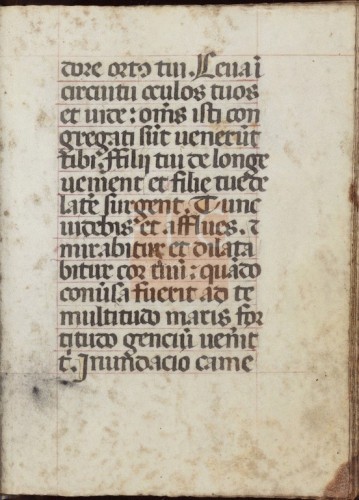 dore ortꝰ tui. Leua ĩ
circuitu oculos tuos
et uide: om̃s isti con
gregati sũt uenerũt
tibi. Filij tui de longe
uenient et filie tue de
latẽ surgent. Tunc
uidebis et afflues. ⁊
mirabitur et dilata
bitur cor tuũ: quãdo
conũsa fuerit ad te
multitudo maris for
titudo genciũ uenĩt
t̃. Inundacio came